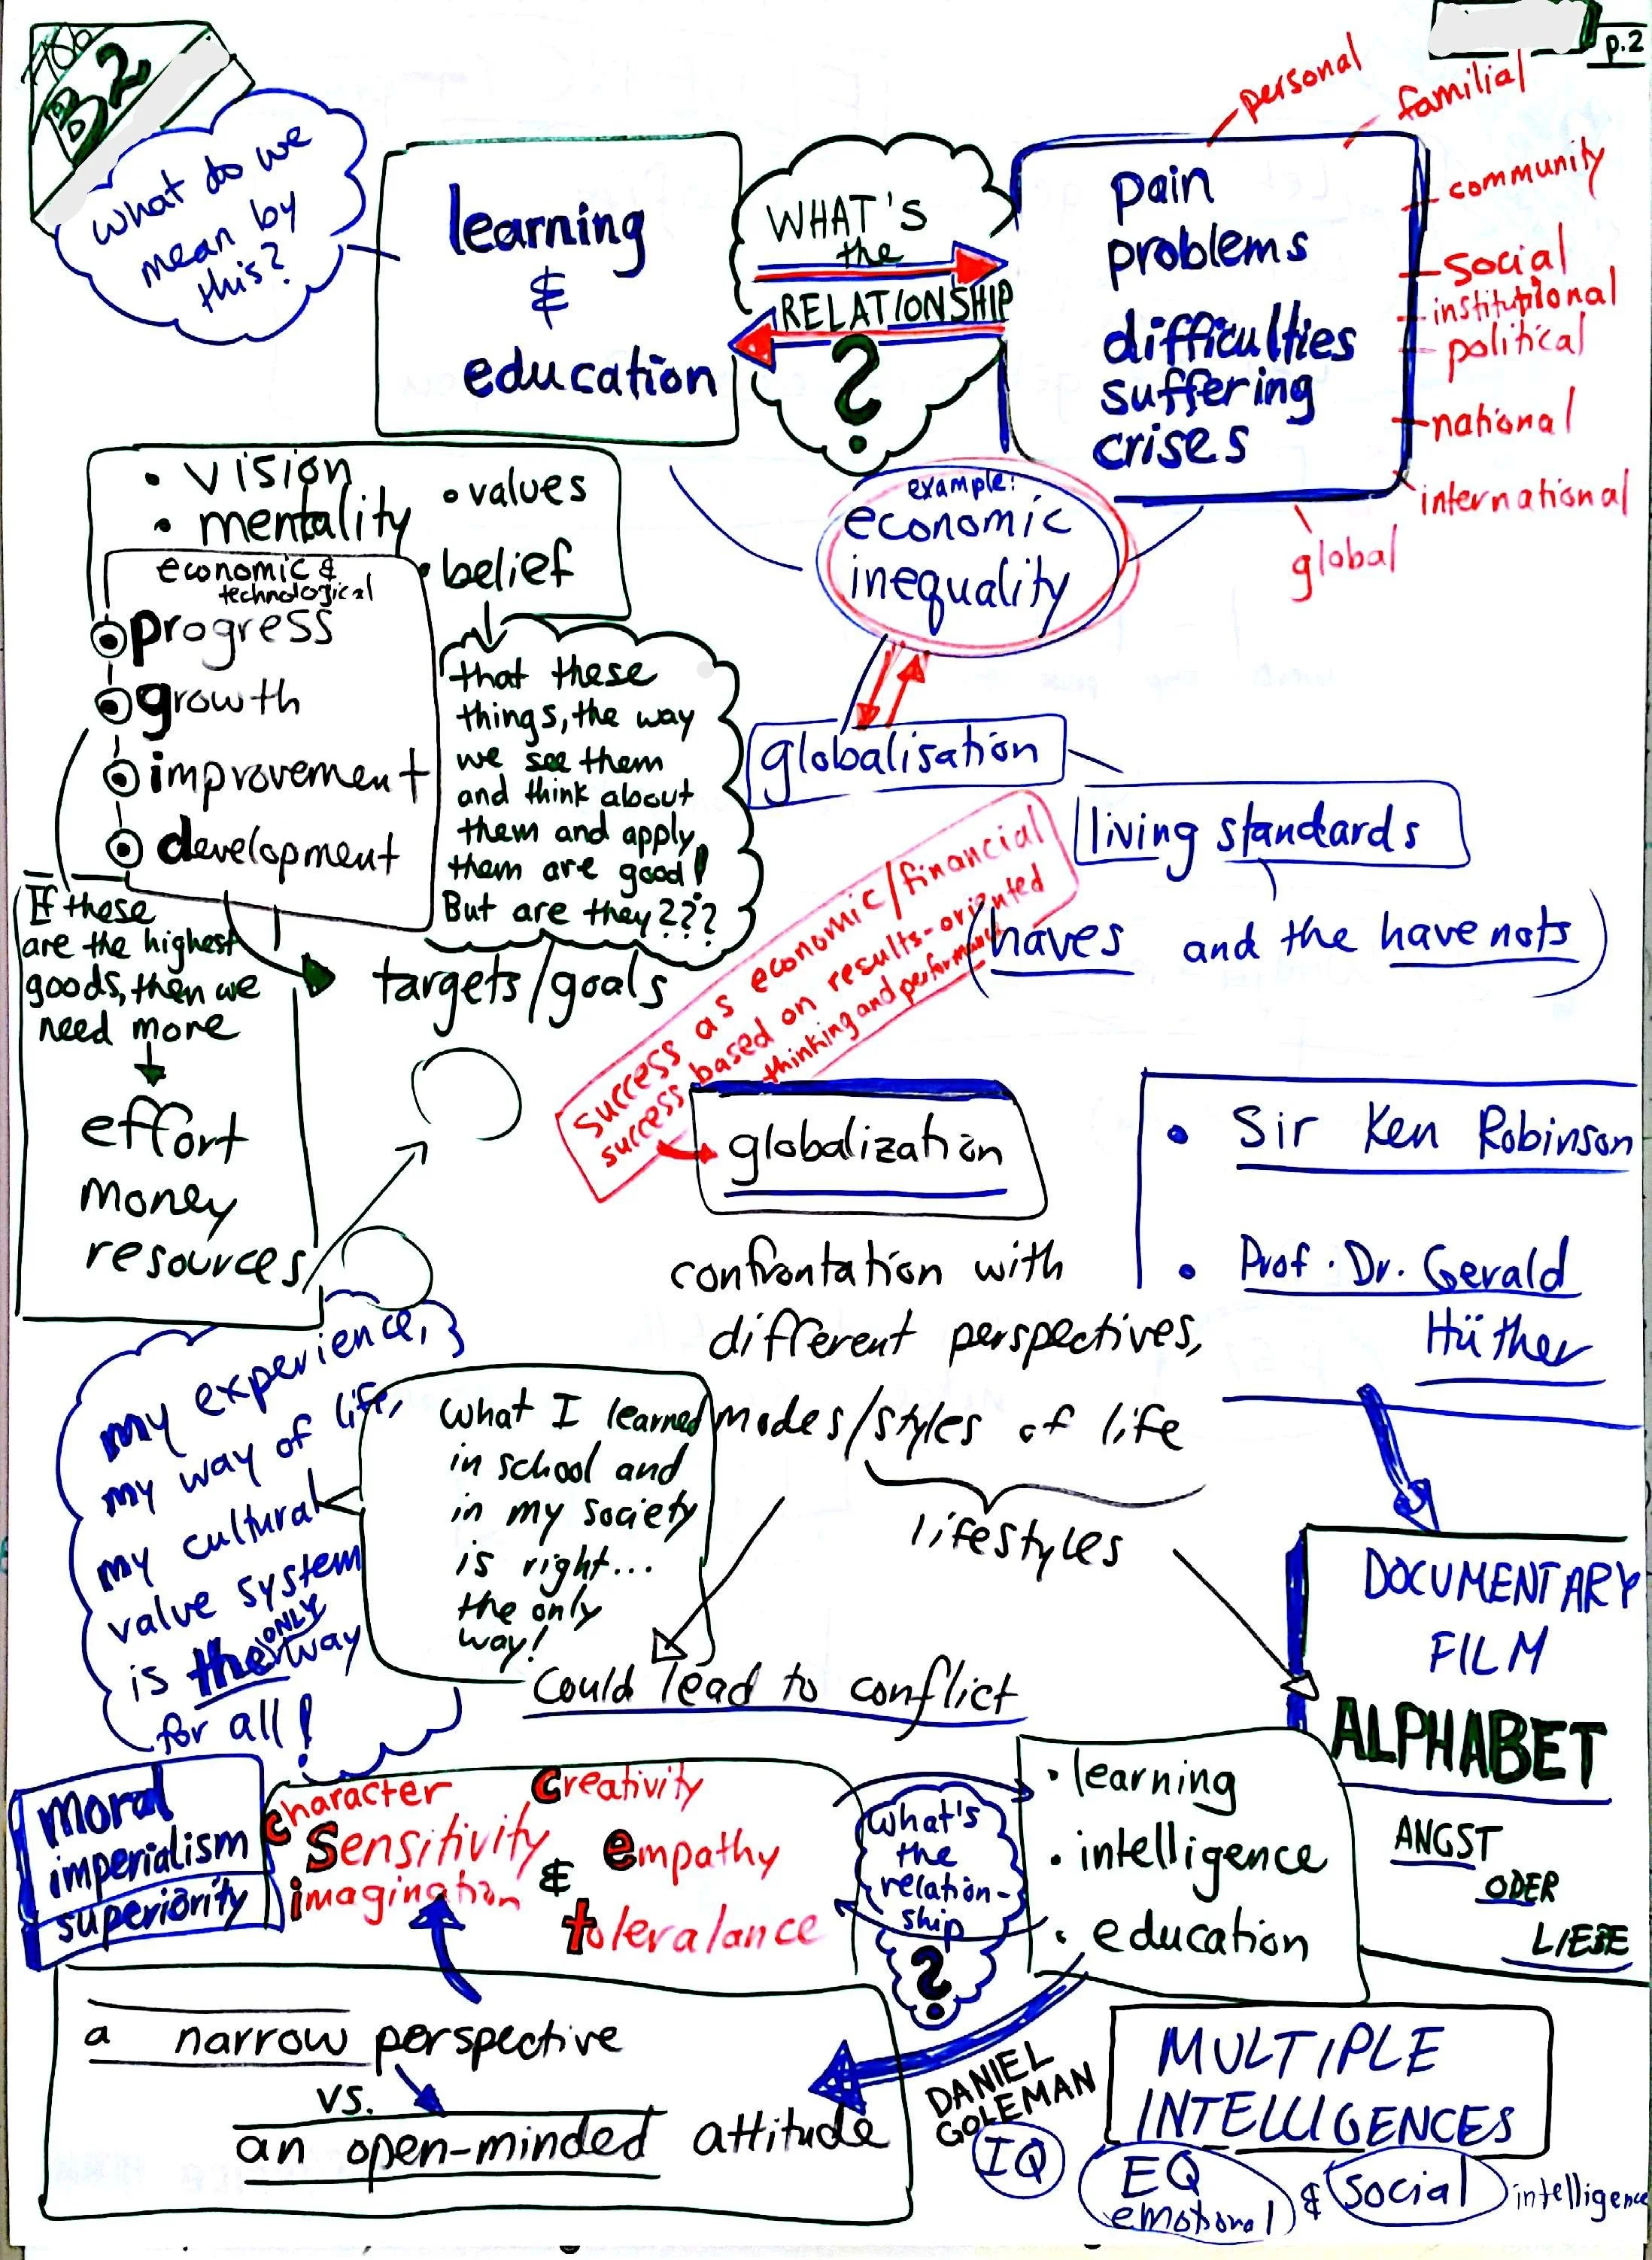 B2
p.2
What do we
mean by
this?
learning
&
education
WHAT'S
the
RELATIONSHIP
?
pain
problems
difficulties
suffering
crises
personal
familial
community
social
institutional
political
national
international
global
example:
economic
inequality
• vision
• mentality
• values
• belief
economic &
technological
progress
growth
improvement
development
that these
things, the way
we see them
and think about
them and apply
them are good!
But are they???
If these
are the highest
goods, then we
need more
effort
money
resources
targets/goals
globalisation
living standards
(haves and the have nots)
Success as economic/financial
success based on results-oriented
thinking and performance
globalization
confrontation with
different perspectives,
modes/styles of life
lifestyles
could lead to conflict
• Sir Ken Robinson
• Prof. Dr. Gerald
Hüther
DOCUMENTARY
FILM
ALPHABET
ANGST
ODER
LIEBE
my experience,
my way of life,
my cultural
value system
is the ONLY way
for all!
What I learned
in school and
in my society
is right...
the only
way!
moral
imperialism
superiority
character
Creativity
Sensitivity
&
empathy
imagination
toleralance
What's
the
relation-
ship
?
• learning
• intelligence
• education
a narrow perspective
vs.
an open-minded attitude
DANIEL
GOLEMAN
MULTIPLE
INTELLIGENCES
IQ
EQ
emotional
& social intelligence